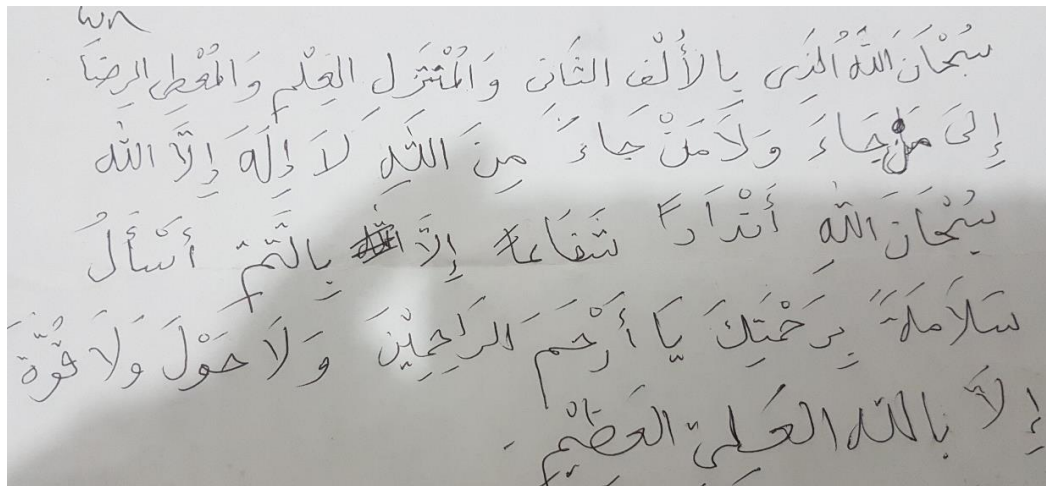 سُبْحَانَ اللّٰهُ الَّذِى بِالأَلْفِ الثَّانِى وَالْمُتَنَزِّلِ العِلْمِ وَالْمُعْطِى الرِضَا
إِلَىَ مَنْ جَاءَ وَلَا مَنْ جَاءَ مِنَ اللّٰهِ لَا إِلَهَ إِلَّا اللّٰه
سُبْحَانَ اللّٰهِ أَنْدَادًا شَفَاعَةً إِلَّا أَسْأَلُ
سَلَامَةً بِرَحْمَتِكَ يَا أَرْحَمَ الرَاحِمِيْنَ وَلَا حَوْلَ وَلَا قُوَّةَ
إِلَّا بِاللّٰه العَلِيّ العَظِيْمِ.